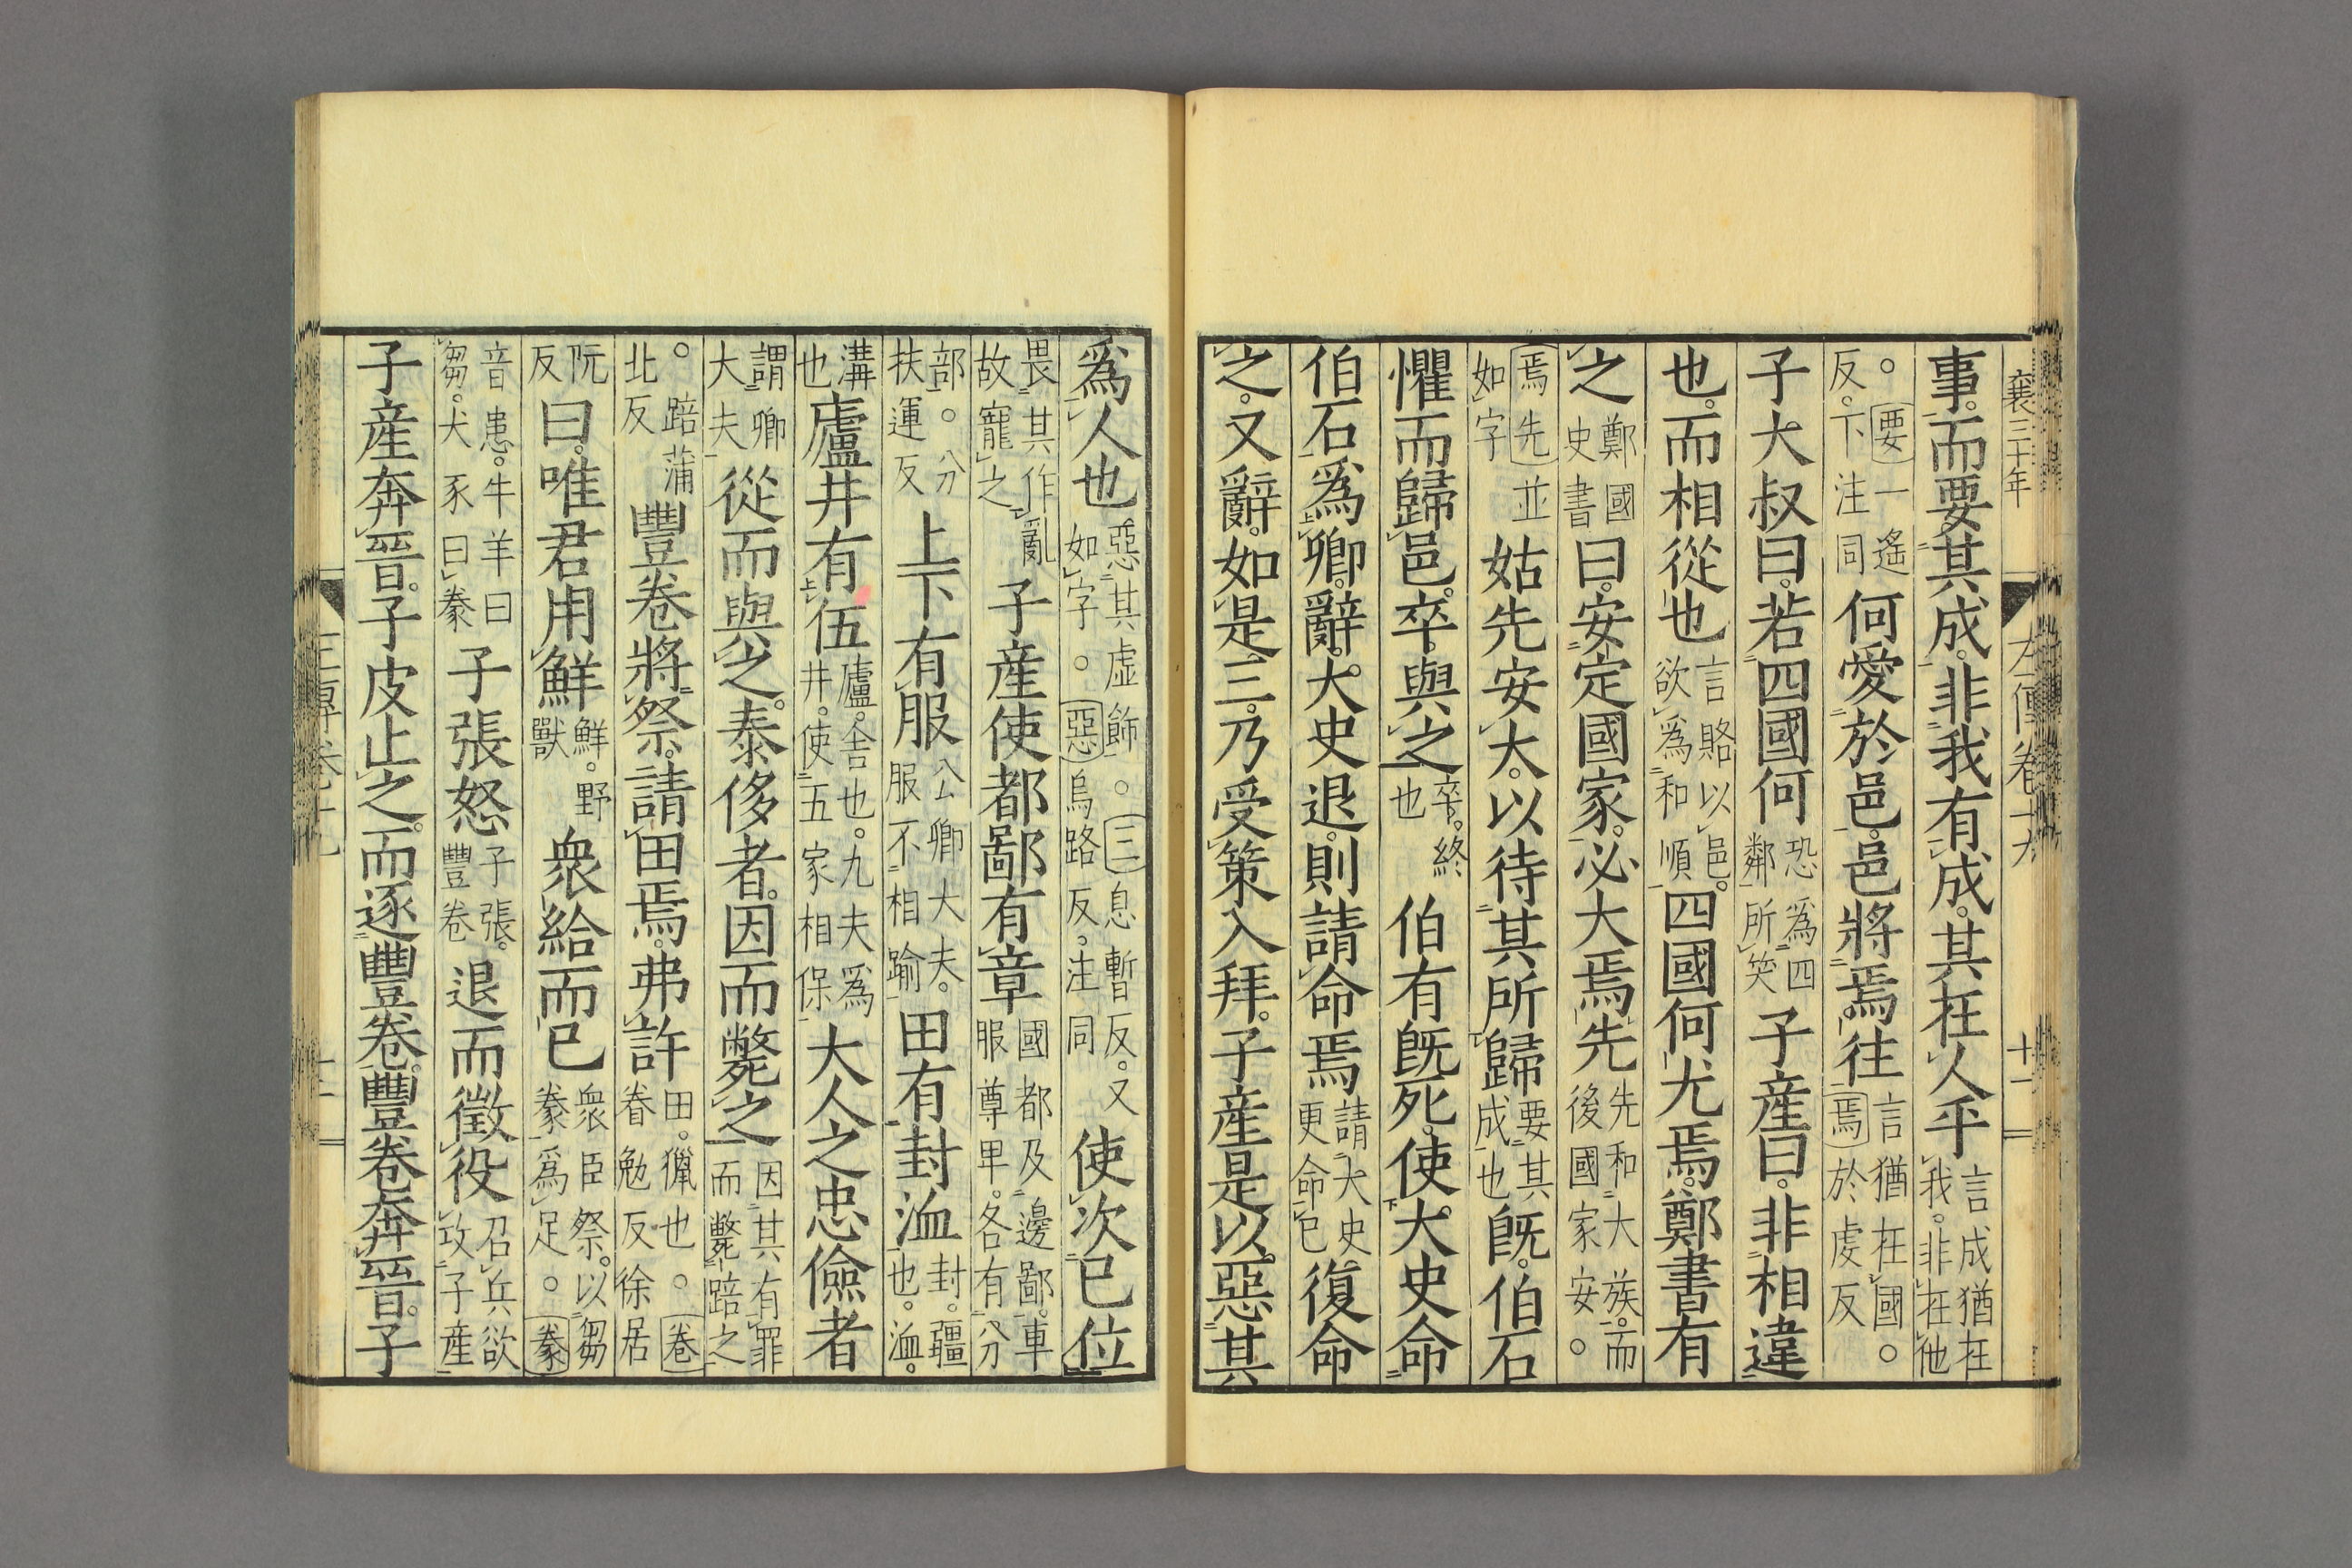 襄三十年　左傳卷十九　十一
事。而要其成。非我有成。其在人乎言成猶在我。非在他
。要一遙反。下注同何愛於邑。邑將焉往言猶在國。。焉於虔反
子大叔曰。若四國何恐爲四鄰所笑子產曰。非相違
也。而相從也言賂以邑。欲爲和順四國何尤焉。鄭書有
之鄭國史書曰。安定國家。必大焉先先和大族。而後國家安。。
焉先並如字姑先安大。以待其所歸要其成也旣。伯石
懼而歸邑。卒與之卒。終也伯有旣死。使大史命
伯石爲卿。辭。大史退。則請命焉請大史更命已復命
之。又辭。如是三。乃受策入拜。子產是以惡其
爲人也惡其虛飾。。三息暫反。又如字。惡烏路反。注同使次已位
畏其作亂故寵之子產使都鄙有章國都及邊鄙。車服尊卑。各有分
部。。分扶運反上下有服公卿大夫。服不相踰田有封洫封。疆也。洫。
溝也廬井有伍廬。舍也。九夫爲井。使五家相保大人之忠儉者
謂卿大夫從而與之。泰侈者。因而斃之因其有罪而斃踣之
。踣蒲北反豐卷將祭。請田焉。弗許田。獵也。。卷眷勉反徐居
阮反曰。唯君用鮮鮮。野獸衆給而已衆臣祭。以芻豢爲足。。豢
音患。牛羊曰芻。犬豕曰豢子張怒子張。豐卷退而徵役召兵欲攻子產
子產奔晉。子皮止之。而逐豐卷。豐卷奔晉。子